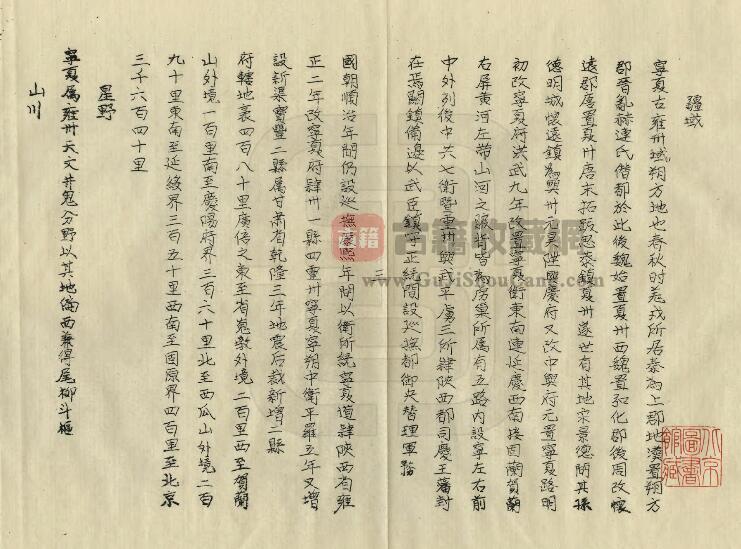 疆域
寧夏古雍州域朔方地也春秋時羌戎所居秦為上郡地漢置朔方
郡晉亂赫連氏僭都於此後魏始置夏州西魏置弘化郡後周改懷
遠郡隋置夏州唐末拓跋思恭鎮夏州遂世有其地宋景德間其孫
德明城懷遠鎮為興州元昊陞興慶府又改中興府元置寧夏路明
初改寧夏府洪武九年改置寧夏衛東南連延慶西南接固蘭賀蘭
右屏黃河左帶山河之限背皆為虜巢所屬有五路內設寧左右前
中外列後中共七衛暨靈州興武平虜三所肄陝西都司慶王藩封
在焉嗣鎮備邊以武臣鎮守正統間設巡撫都御史替理軍務
國朝順治年間仍設巡撫康熙年間以衛所統寧夏道肄陝西省雍
正二年改寧夏府肄州一縣四靈州寧夏寧朔中衛平羅五年又增
設新渠寶豐二縣属甘肅省乾隆三年地震后裁新增二縣
府轄地袤四百八十里廣倍之東至省嵬墩外境二百里西至賀蘭
山外境一百里南至慶陽府界三百六十里北至西瓜山外境二百
九十里東南至延綏界三百五十里西南至固原界四百里至北京
三千六百四十里
星野
寧夏属雍州天文井鬼分野以其地偏西兼得尾柳斗樞
山川
三
古籍
古籍收藏网
www.GuYiShouCang.com